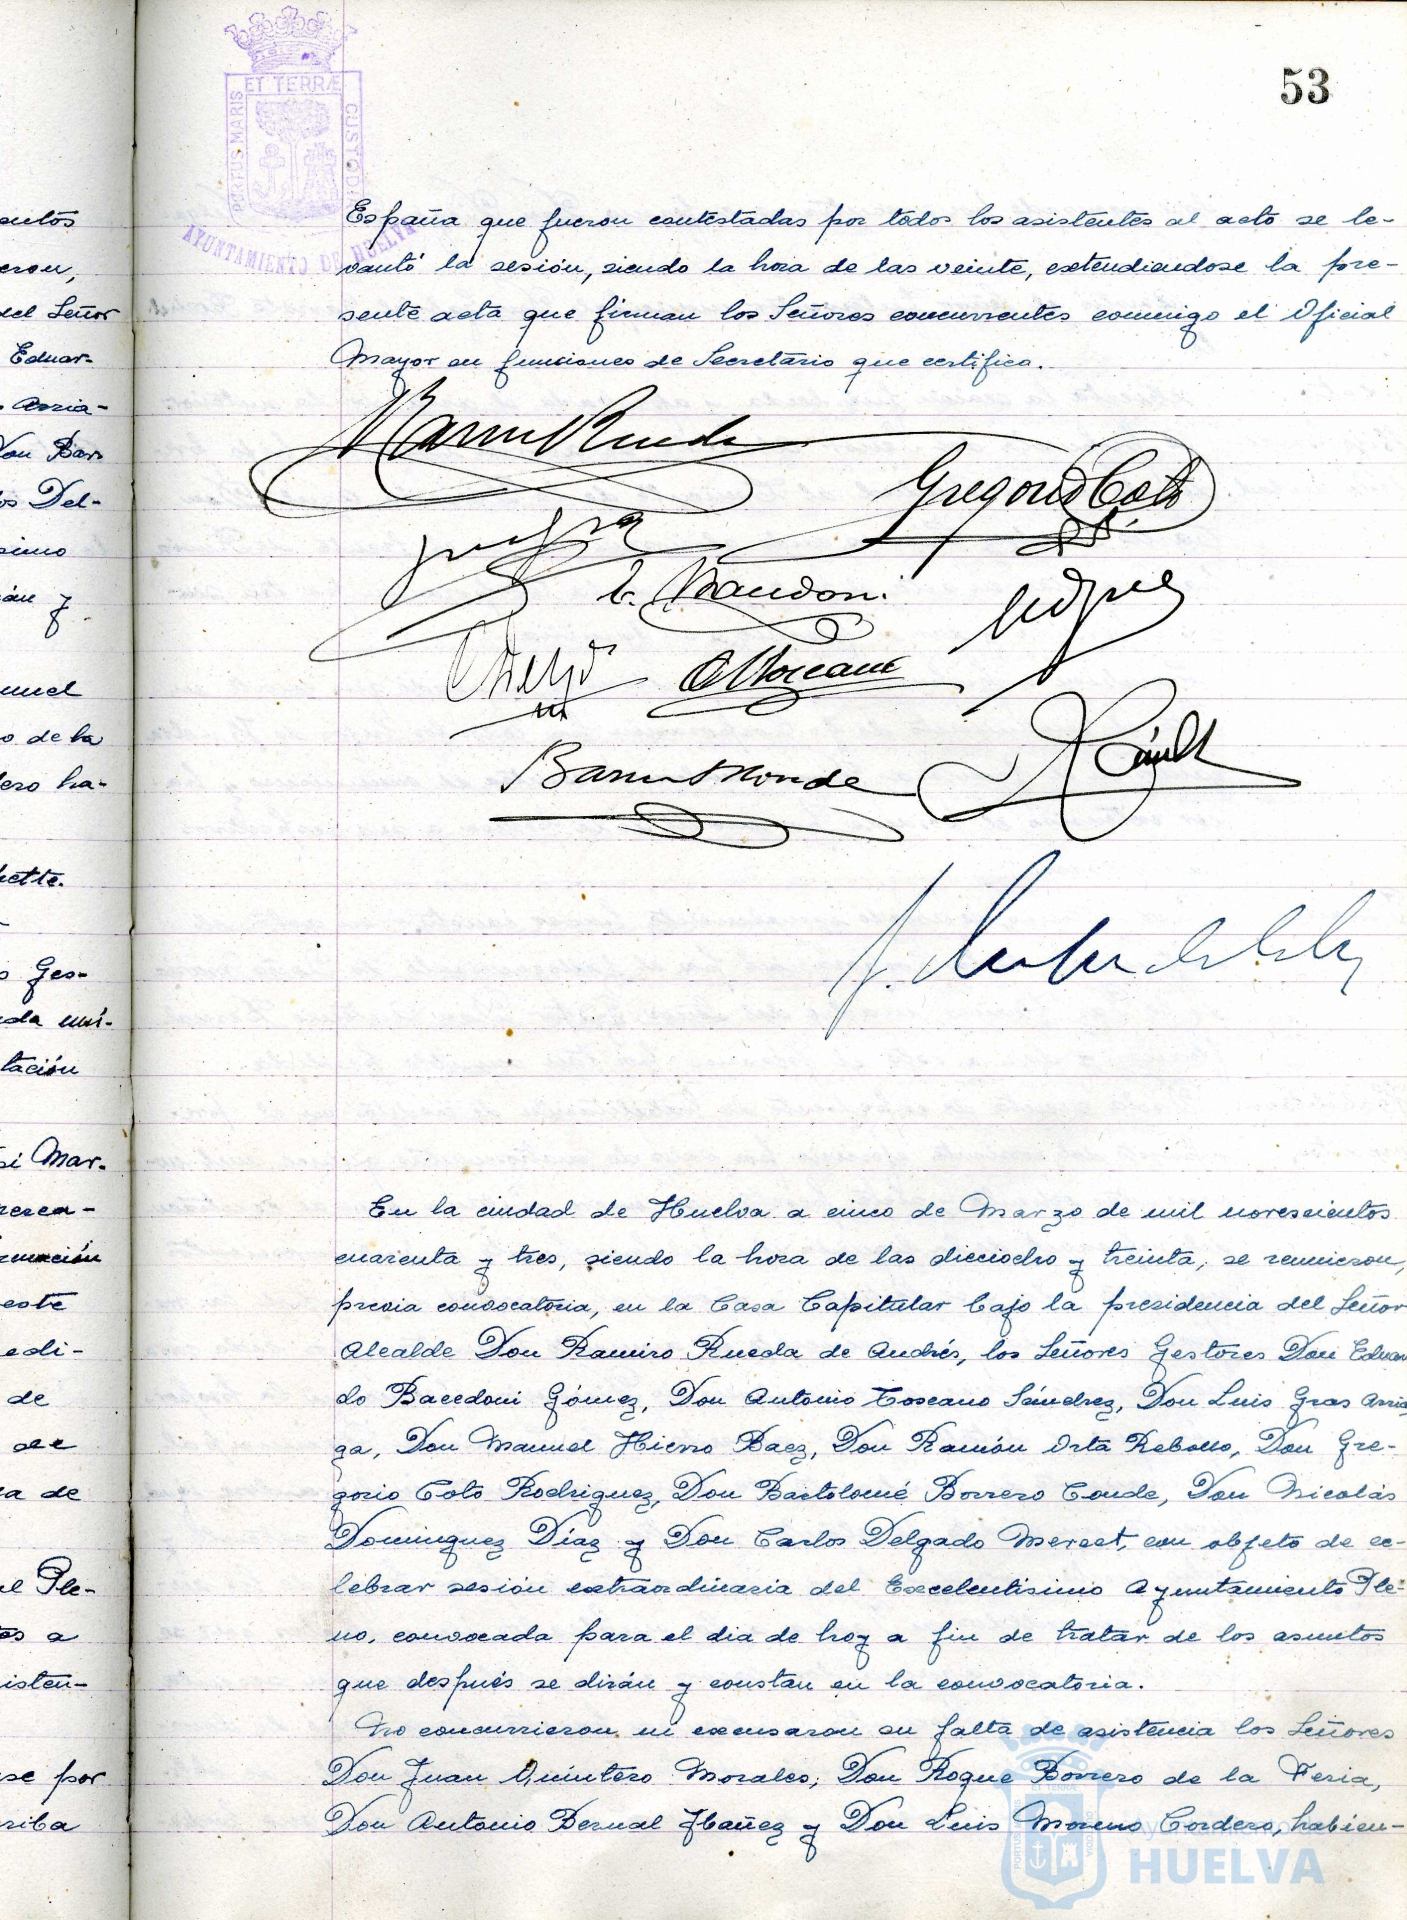 53
PORTUS MARIS ET TERRÆ CUSTODI
AYUNTAMIENTO DE HUELVA
España que fueron contestadas por todos los asistentes al acto se le-
vantó la sesión, siendo la hora de las veinte, extendiendose la pre-
sente acta que firman los Señores concurrentes conmigo el Oficial
Mayor en funciones de Secretario que certifica.
Ramiro Rueda
Gregorio Coto
En la ciudad de Huelva a cinco de Marzo de mil novescientos
cuarenta y tres, siendo la hora de las dieciocho y treinta, se reunieron,
previa convocatoria, en la Casa Capitular bajo la presidencia del Señor
Alcalde Don Ramiro Rueda de Andrés, los Señores Gestores Don Eduar
do Bacedoni Gómez, Don Antonio Toscano Sánchez, Don Luis Gras Arria
ga, Don Manuel Hierro Baez, Don Ramón Orta Rebollo, Don Gre-
gorio Coto Rodriguez, Don Bartolomé Borrero Conde, Don Nicolás
Dominguez Díaz y Don Carlos Delgado Mercet, con objeto de ce-
lebrar sesión extraordinaria del Excelentisimo Ayuntamiento Ple-
no, convocada para el dia de hoy a fin de tratar de los asuntos
que después se dirán y constan en la convocatoria.
No concurrieron ni excusaron su falta de asistencia los Señores
Don Juan Quintero Morales, Don Roque Borrero de la Feria,
Don Antonio Bernal Ibañez y Don Luis Moreno Cordero, habien-
Ayuntamiento de
HUELVA
del Señor
Eduar-
Arria-
Don Bar
Del-
y
de la
ha-
Ges-
tación
Mar-
este
de
de
Ple-
a
por